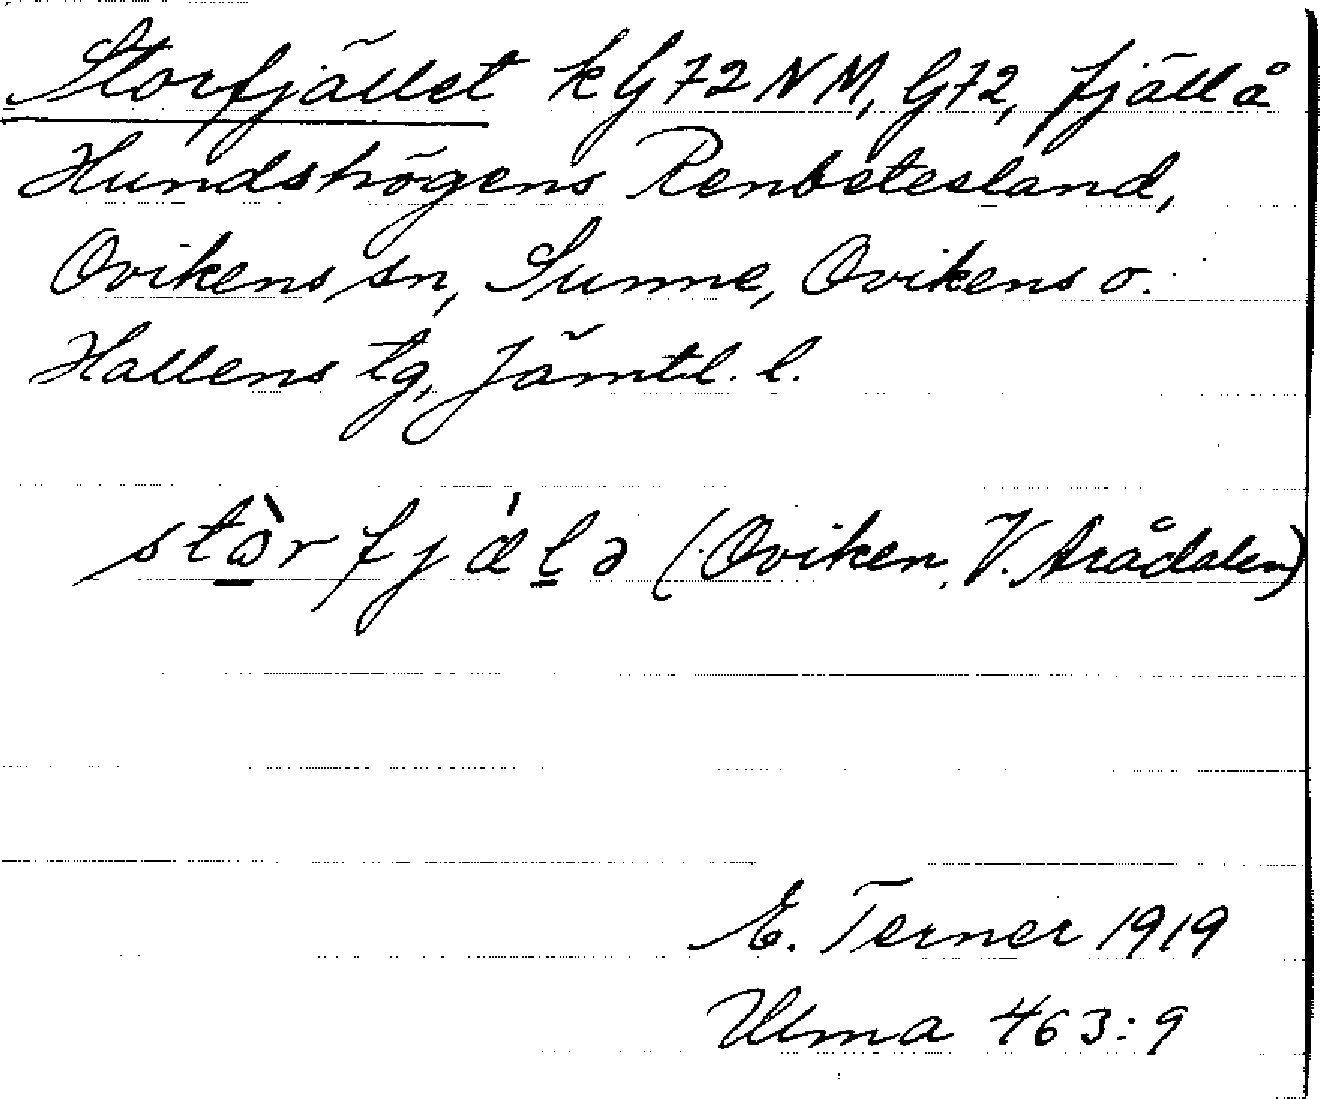 Storfjället kG72NM, G72, fjäll å
Hundshögens Renbetesland,
Ovikens sn, Sunne, Ovikens o.
Hallens tg, Jämtl. l.
stòrfjǽlə (Oviken, V. Arådalen)
E. Terner 1919
Ulma 463:9